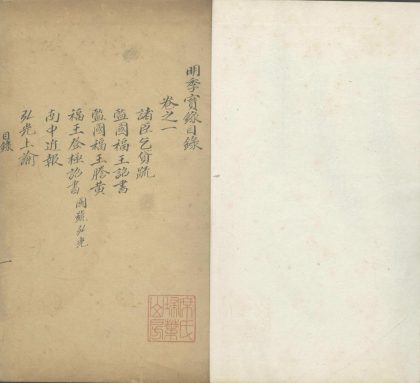 明季實錄目錄
卷之一
諸臣乞貸疏
監國福王詔書
監國福王謄黃
福王登極詔書 國號弘光
南中近報
弘光上諭
目錄
一
席氏
掃葉
山房